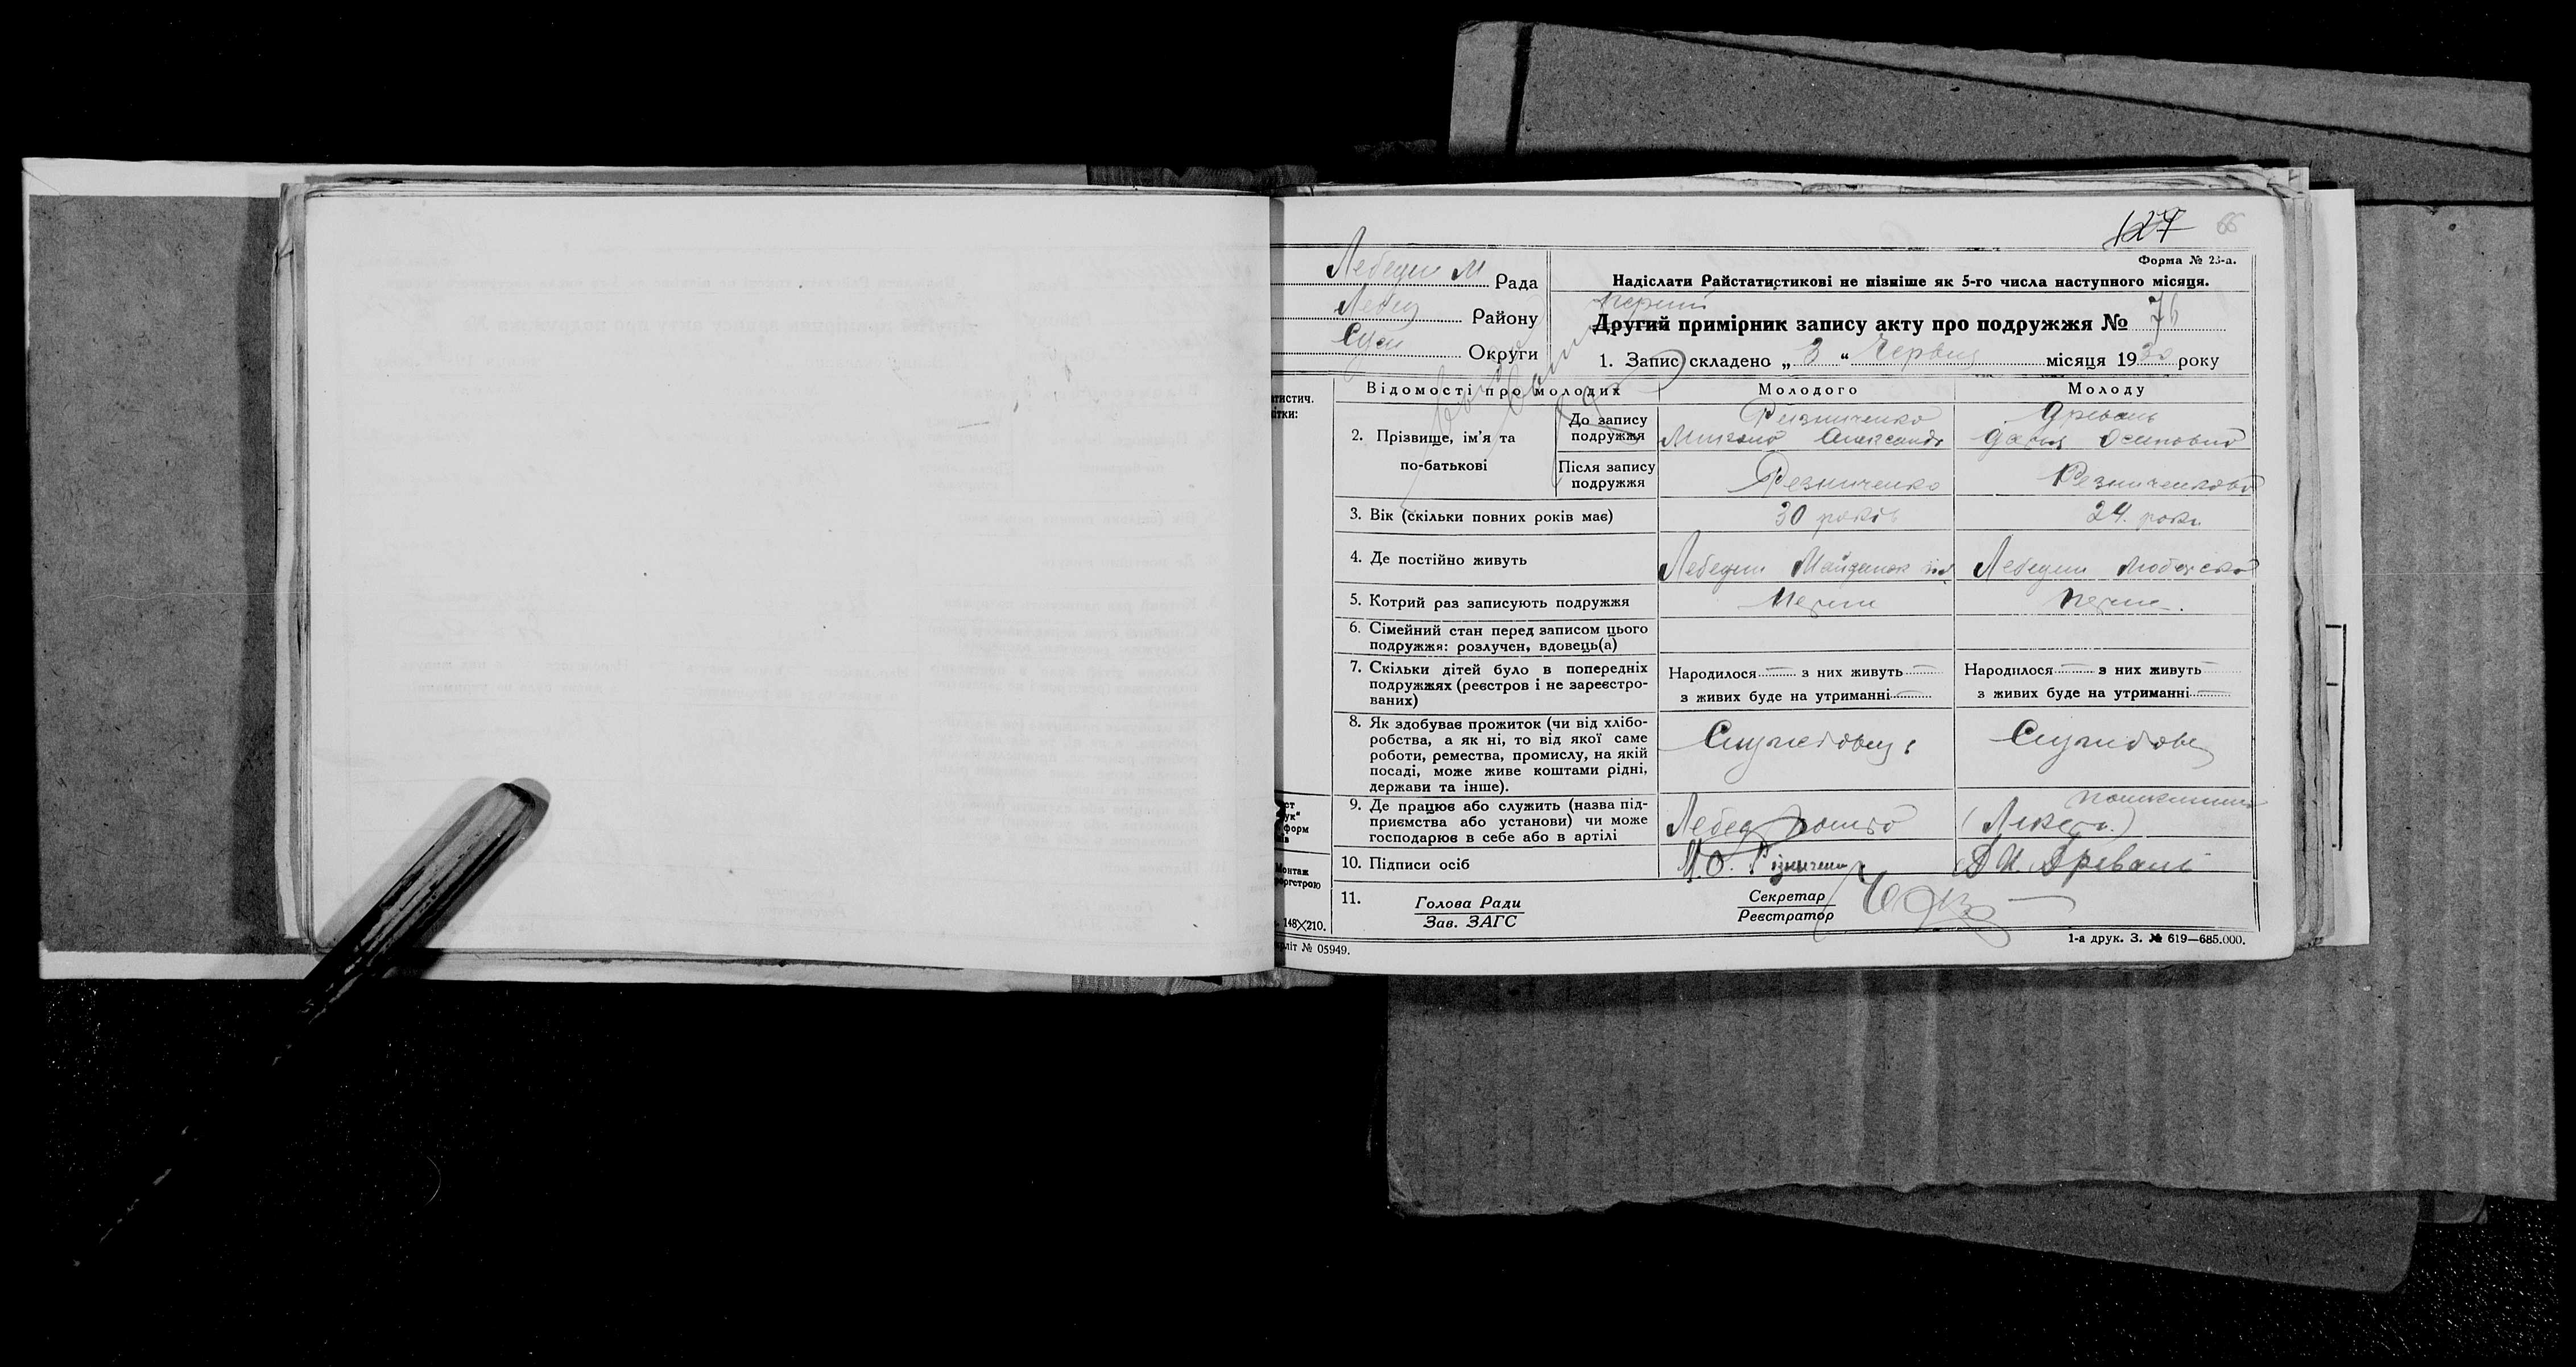 127 66
Форма № 23-а.
Лебедин М Рада
Лебед Району
Сум Округи
Надіслати Райстатистикові не пізніше як 5-го числа наступного місяця.
перший
Другий примірник запису акту про подружжя № 76
1. Запис складено „ 3 “ Червня місяця 1930 року
тистич.
ітки:
Відомості про молодих Молодого Молоду
2. Прізвище, ім'я та по-батькові
До запису подружжя
Резниченко
Микола Олександр
Древань
Осиповна
Після запису подружжя
Резниченко Резниченкова
3. Вік (скільки повних років має) 30 років 24 роки
4. Де постійно живуть Лебедин Лебедин
5. Котрий раз записують подружжя Перши перше.
6. Сімейний стан перед записом цього
подружжя: розлучен, вдовець(а)
7. Скільки дітей було в попередніх
подружжях (реєстров і не зареєстро-
ваних)
Народилося — з них живуть —
з живих буде на утриманні —
Народилося — з них живуть —
з живих буде на утриманні —
8. Як здобуває прожиток (чи від хлібо-
робства, а як ні, то від якої саме
роботи, ремества, промислу, на якій
посаді, може живе коштами рідні,
держави та інше).
Службовець Службовец
9. Де працює або служить (назва під-
приємства або установи) чи може
господарює в себе або в артілі
Лебед
10. Підписи осіб М.О. Різниченко Д И. Древань
11. Голова Ради
Зав. ЗАГС
Секретар
Реєстратор
ст
ук“
форм
ів
Монтаж
оргстрою
148×210.
літ № 05949.
1-а друк. З. № 619—685.000.